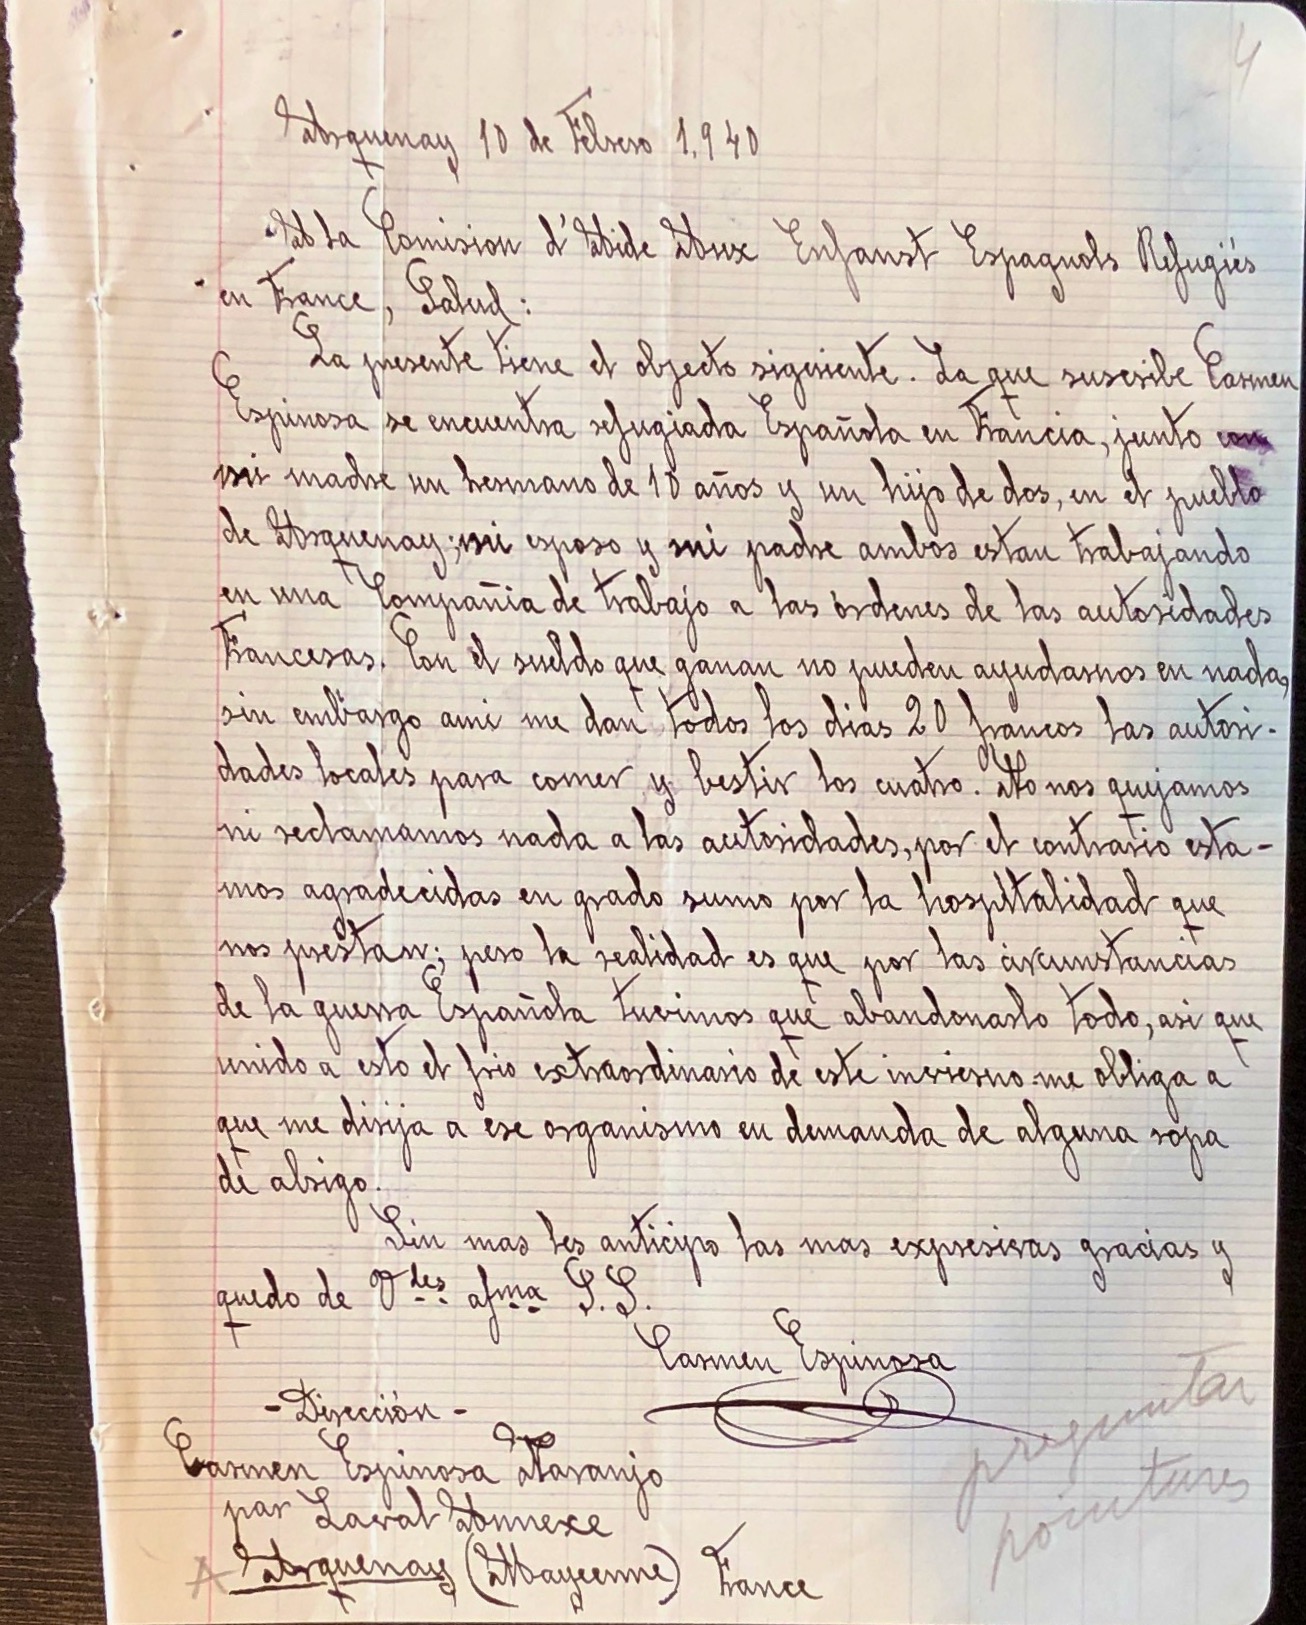 4
Arquenay 10 de Febrero 1.940
A la Comision d'Aide Aux Enfanst Espagnols Refugiés
en France, Salud:
La presente tiene el objecto sigeriente. La que suscribe Carmen
Espinosa se encuentra refugiada Española en Francia, junto con
mi madre un hermano de 10 años y un hijo de dos, en el pueblo
de Arquenay; mi esposo y mi padre ambos estan trabajando
en una Compañia de trabajo a las órdenes de las autoridades
Francesas. Con el sueldo que ganan no pueden ayudarnos en nada,
sin embargo ami me dan todos los dias 20 francos las autori-
dades locales para comer y bestir los cuatro. No nos quejamos
ni reclamamos nada a las autoridades, por el contrario esta-
mos agradecidas en grado sumo por la hospitalidad que
nos prestan; pero la realidad es que por las circunstancias
de la guerra Española tuvimos que abandonarlo todo, asi que
unido a esto el frio extraordinario de este invierno me obliga a
que me dirija a ese organismo en demanda de alguna ropa
de abrigo.
Sin mas les anticipo las mas expresivas gracias y
quedo de Vdes afma S.S.
Carmen Espinosa
- Dirección -
Carmen Espinosa Naranjo
par Laval Annexe
A Arquenay (Mayenne) France
preguntar
pointures